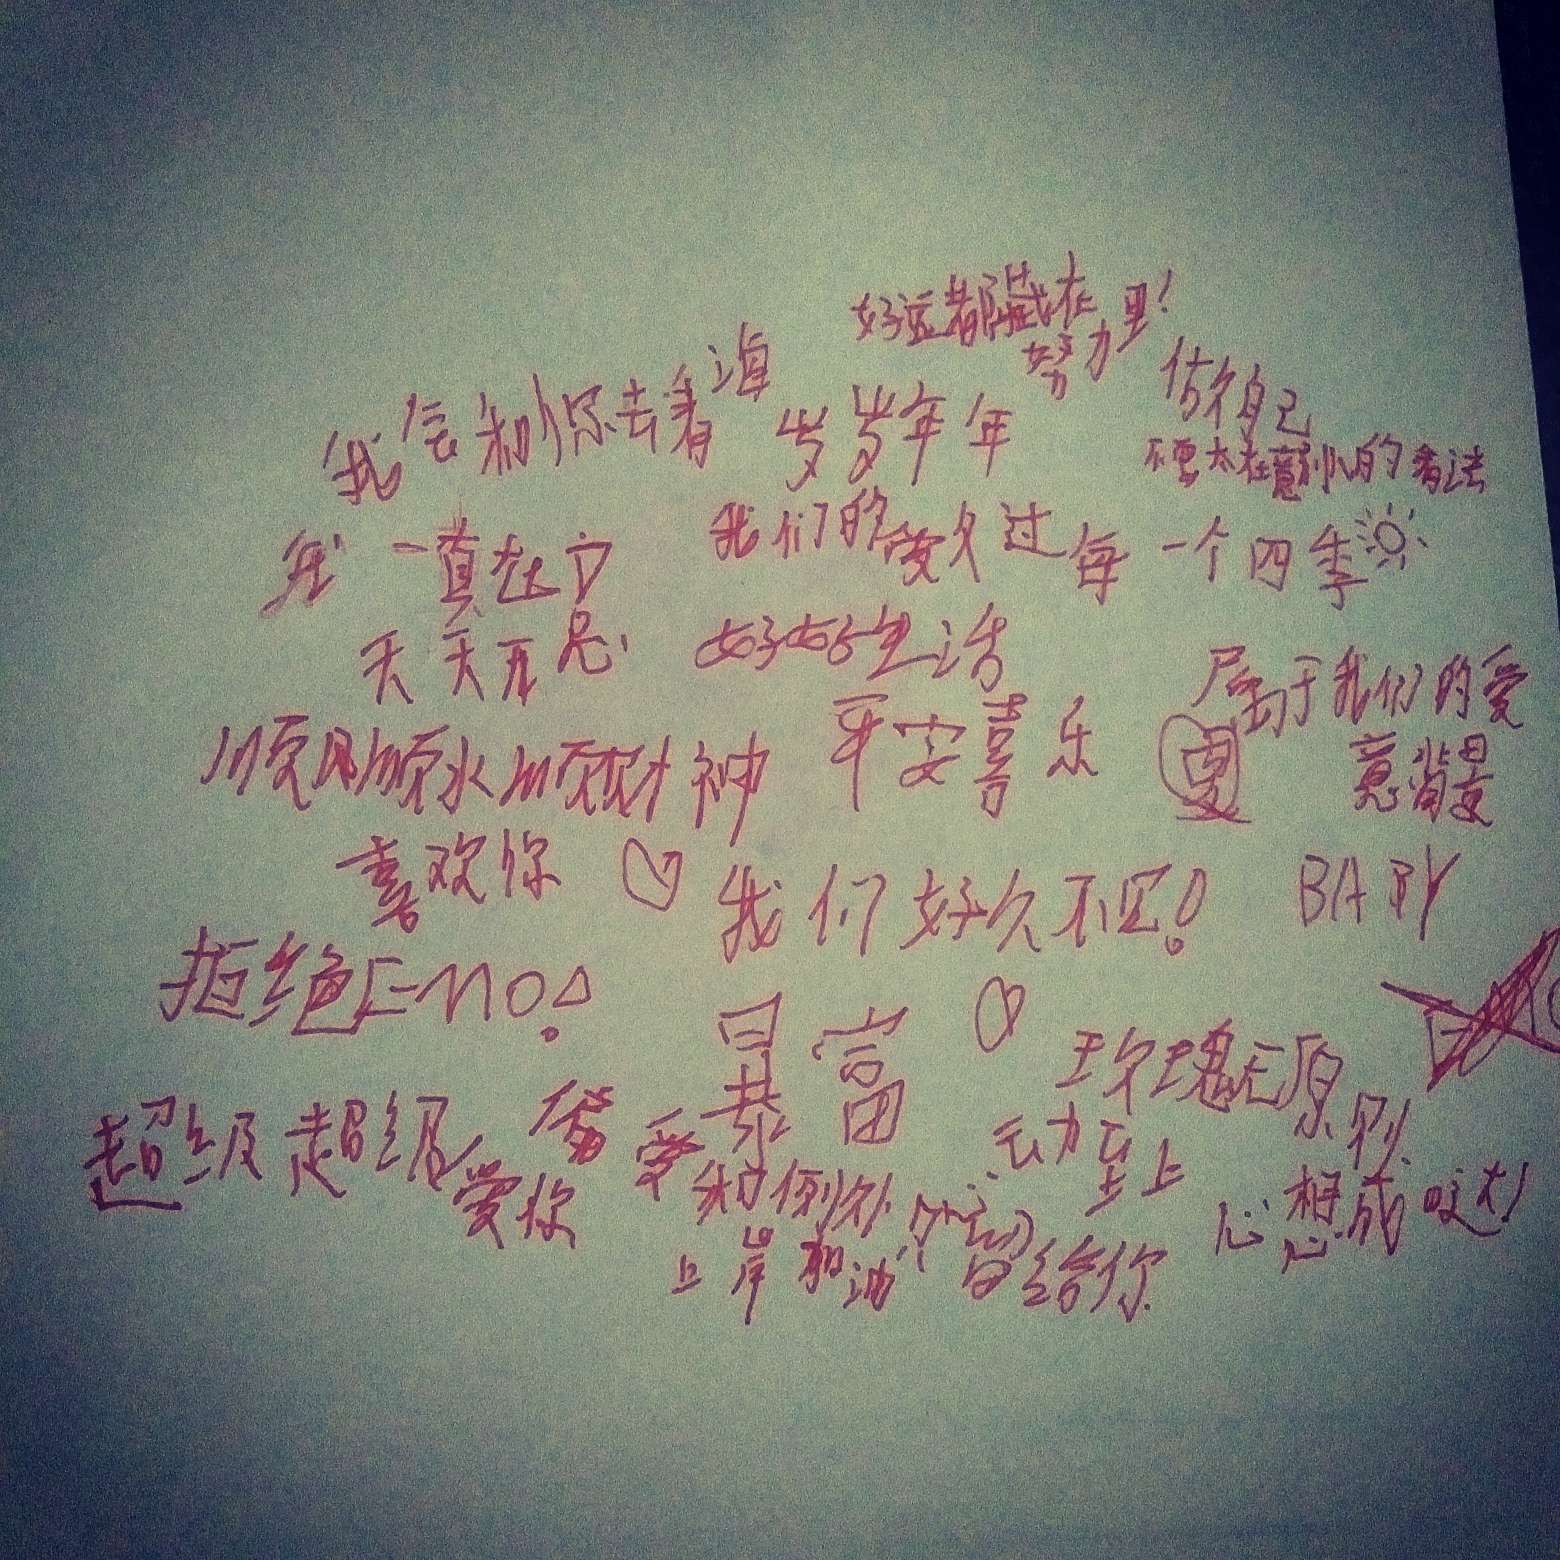 好运都藏在
努力里!
我会和你去看海
岁岁年年
做自己
不要太在意别人的看法
我一直在
我们的爱久过每一个四季
天天开心
好好生活
属于我们的爱
意背景
顺风顺水顺财神
平安喜乐
喜欢你
我们好久不见!
BABY
拒绝Emo!
暴富
玫瑰无原则
心动至上
超级超级
爱你
偏爱和例外
留给你
上岸加油!
心想成